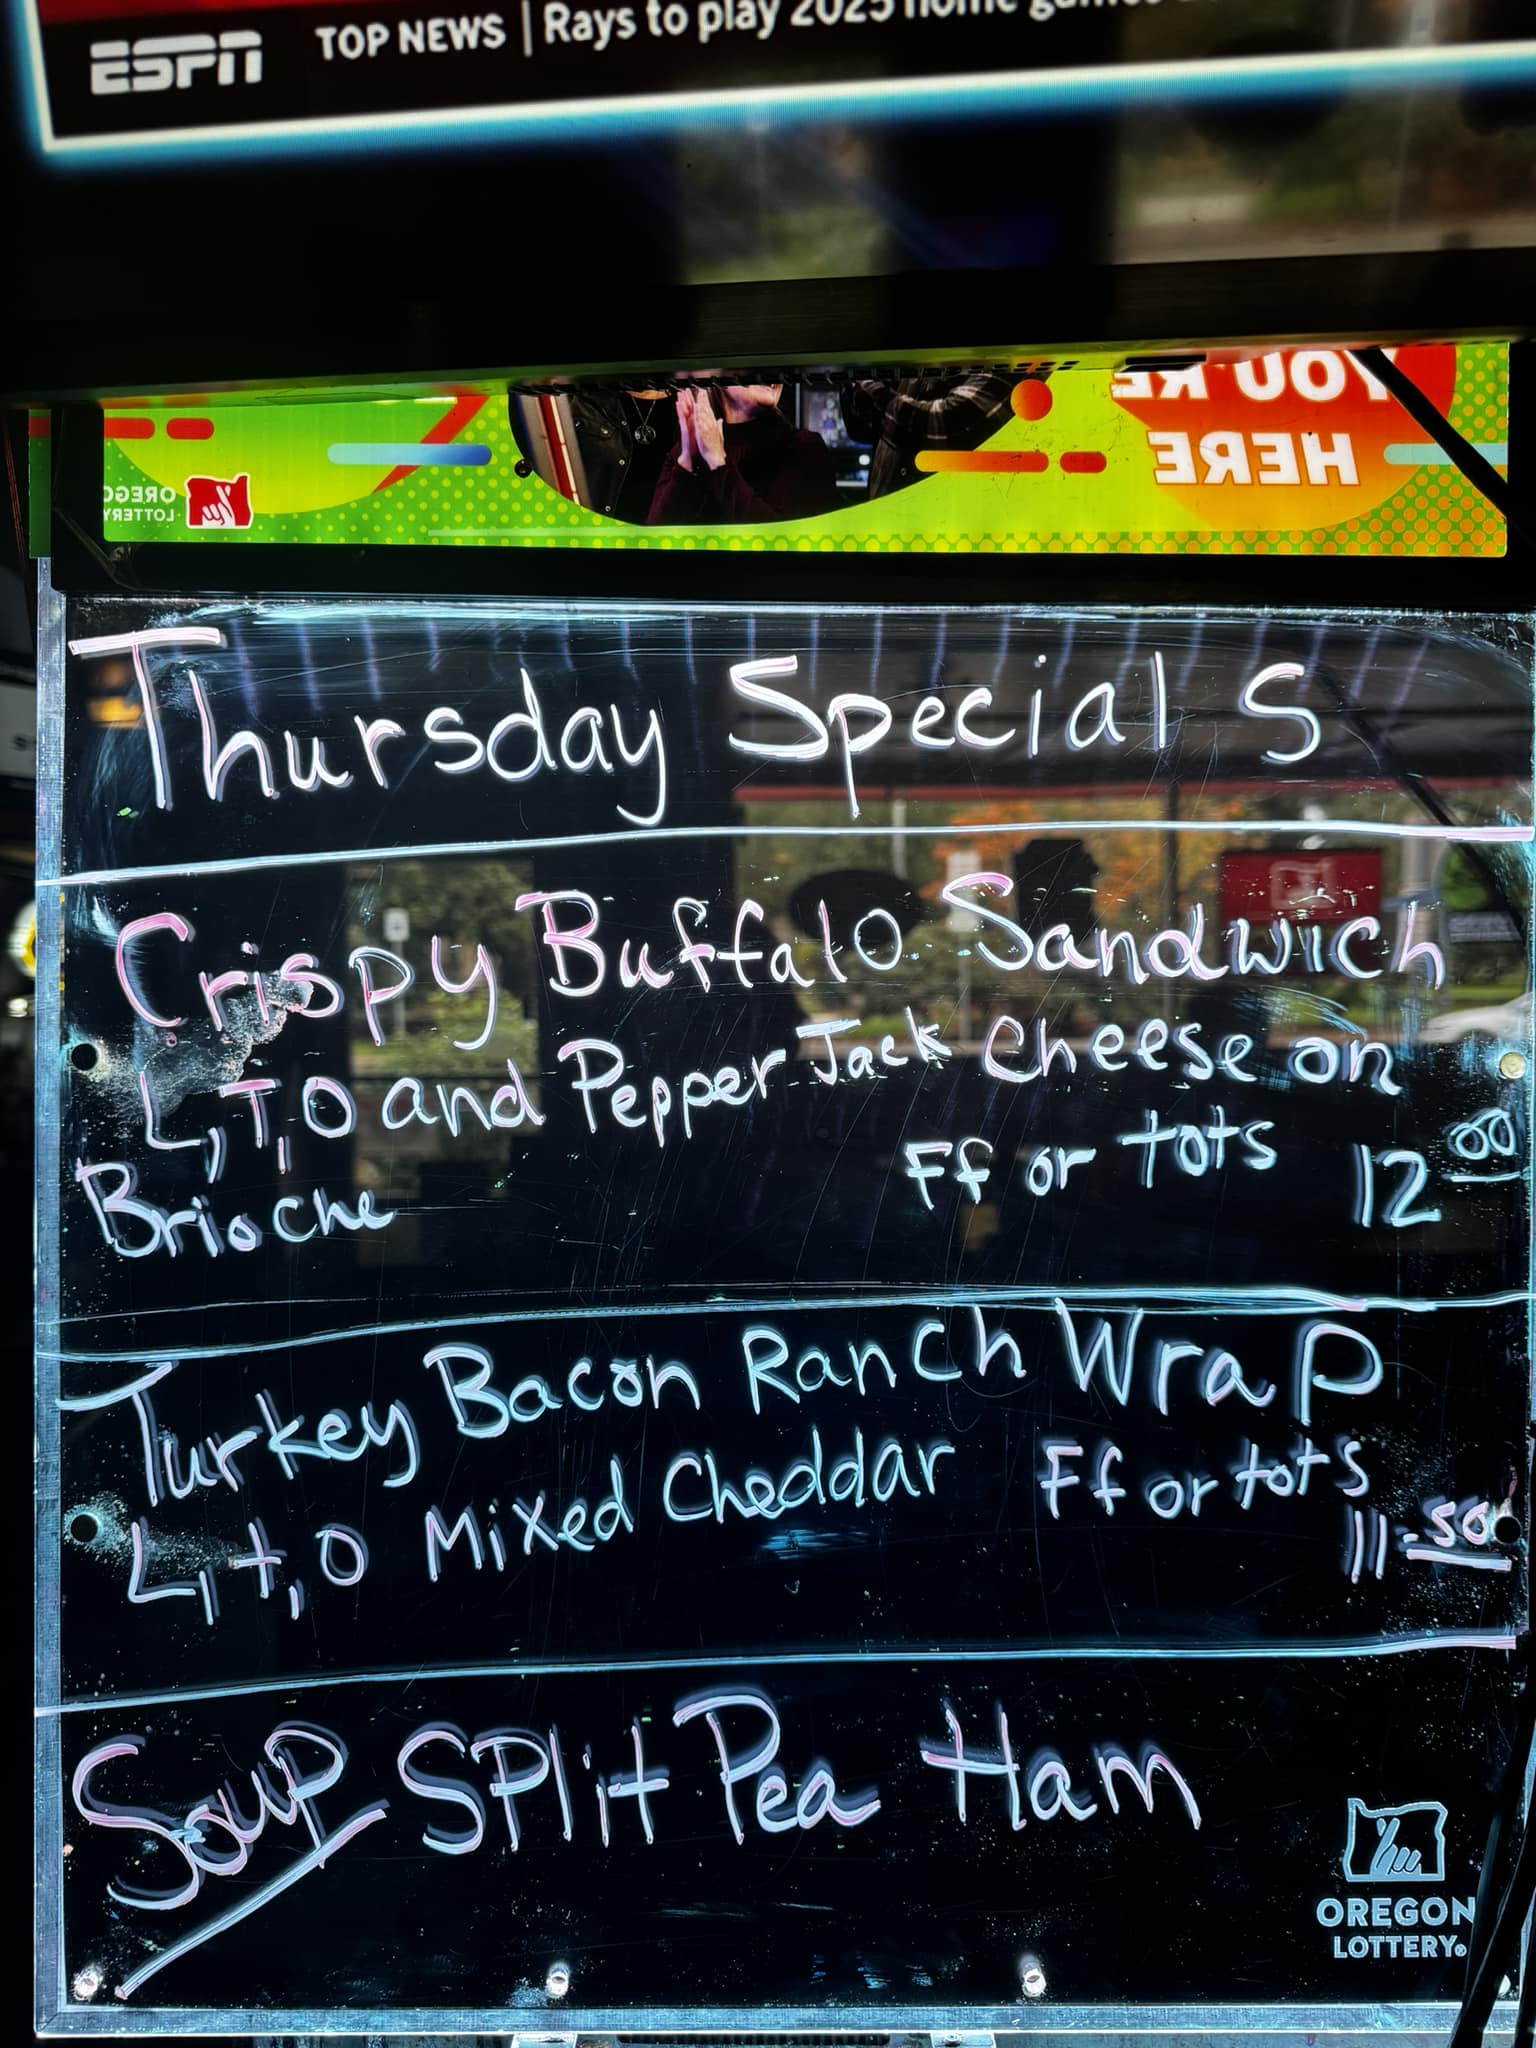 ESPN TOP NEWS | Rays to play 2025 home games
YOU'RE
HERE
OREGO
LOTTERY
Thursday Specials
Crispy Buffalo Sandwich
L, T, O and Pepper Jack Cheese on
Brioche Ff or tots 12 00
Turkey Bacon Ranch Wrap
L, t, O Mixed Cheddar Ff or tots
11.50
Soup Split Pea Ham
OREGON
LOTTERY®